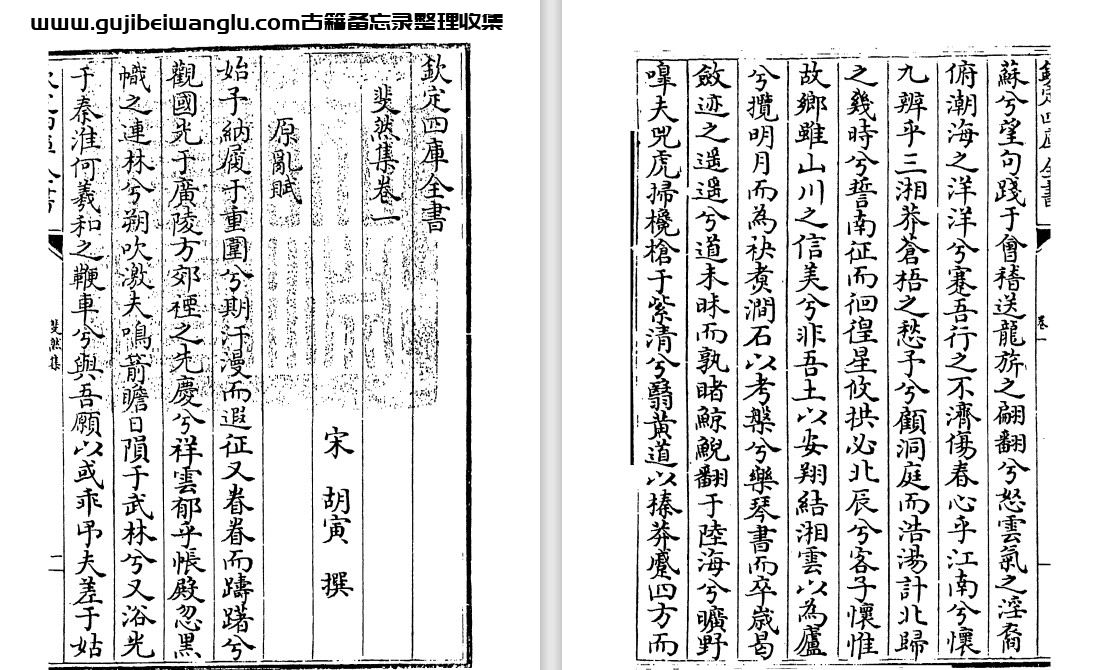 www.gujibeiwanglu.com古籍备忘录整理收集
欽定四庫全書
斐然集卷一
宋 胡寅 撰
原亂賦
始予納履于重圍兮期汗漫而遐征又眷眷而躊躇兮
觀國光于廣陵方郊禋之先慶兮祥雲郁乎帳殿忽黑
幟之連林兮朔吹激夫鳴箭瞻日隕于武林兮又浴光
于秦淮何羲和之鞭車兮與吾願以或乖弔夫差于姑
斐然集
一
欽定四庫全書
卷一
蘇兮望句踐于會稽送龍旂之翩翻兮怒雲氣之淫裔
俯潮海之洋洋兮蹇吾行之不濟傷春心乎江南兮懷
九辨乎三湘莽蒼梧之愁予兮顧洞庭而浩湯計北歸
之幾時兮誓南征而徊徨星攸拱必北辰兮客子懷惟
故鄉雖山川之信美兮非吾土以安翔結湘雲以為廬
兮攬明月而為袂煑澗石以考槃兮樂琴書而卒歲曷
斂迹之遥遥兮道未昧而孰睹鯨鯢翻于陸海兮曠野
嘷夫兕虎掃欃槍于紫清兮翳黃道以榛莽蹙四方而